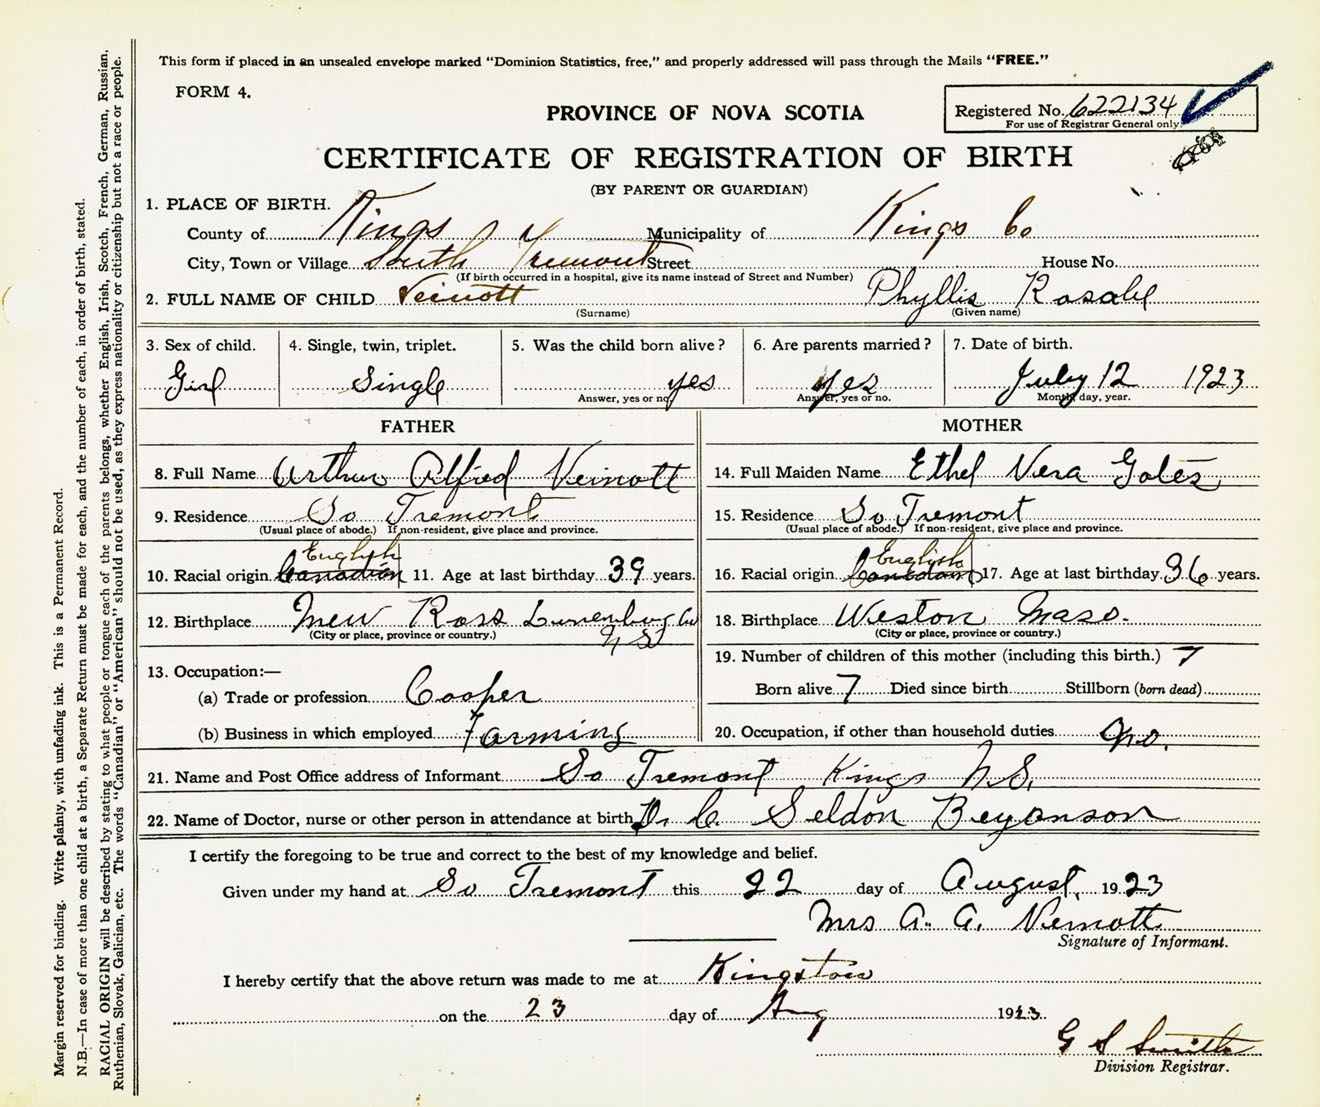 This form if placed in an unsealed envelope marked "Dominion Statistics, free," and properly addressed will pass through the Mails "FREE."
FORM 4.
PROVINCE OF NOVA SCOTIA
Registered No. 622134
For use of Registrar General only.
CERTIFICATE OF REGISTRATION OF BIRTH
(BY PARENT OR GUARDIAN)
1. PLACE OF BIRTH.
County of Kings Municipality of Kings Co
City, Town or Village South Tremont Street House No.
(If birth occurred in a hospital, give its name instead of Street and Number)
2. FULL NAME OF CHILD Veinott Phyllis Rosalie
(Surname) (Given name)
3. Sex of child. 4. Single, twin, triplet. 5. Was the child born alive? 6. Are parents married? 7. Date of birth.
Girl Single yes yes July 12 1923
Answer, yes or no Answer, yes or no. Month, day, year.
FATHER MOTHER
8. Full Name Arthur Alfred Veinott 14. Full Maiden Name Ethel Vera Gates
9. Residence So Tremont 15. Residence So Tremont
(Usual place of abode.) If non-resident, give place and province. (Usual place of abode.) If non-resident, give place and province.
English English
10. Racial origin Canadian 11. Age at last birthday 39 years. 16. Racial origin Canadian 17. Age at last birthday 36 years.
12. Birthplace New Ross Lunenburg Co 18. Birthplace Weston Mass.
(City or place, province or country.) N S (City or place, province or country.)
19. Number of children of this mother (including this birth.) 7
13. Occupation:—
(a) Trade or profession Cooper Born alive 7 Died since birth Stillborn (born dead)
(b) Business in which employed Farming 20. Occupation, if other than household duties no.
21. Name and Post Office address of Informant So Tremont Kings N.S.
22. Name of Doctor, nurse or other person in attendance at birth Dr C. Seldon
I certify the foregoing to be true and correct to the best of my knowledge and belief.
Given under my hand at So Tremont this 22 day of August 1923
Mrs A. A. Veinott
Signature of Informant.
I hereby certify that the above return was made to me at Kingston
on the 23 day of Aug 1923
G S Smith
Division Registrar.
Margin reserved for binding. Write plainly, with unfading ink. This is a Permanent Record.
N.B.—In case of more than one child at a birth, a Separate Return must be made for each, and the number of each, in order of birth, stated.
RACIAL ORIGIN will be described by stating to what people or tongue each of the parents belongs, whether English, Irish, Scotch, French, German, Russian,
Ruthenian, Slovak, Galician, etc. The words "Canadian" or "American" should not be used, as they express nationality or citizenship but not a race or people.